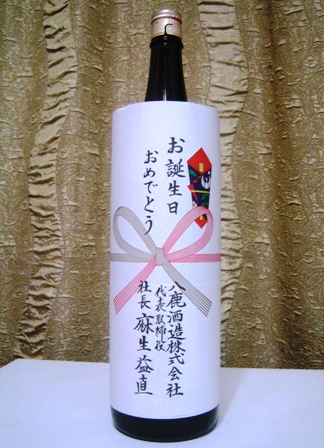 お誕生日
おめでとう
八鹿酒造株式会社
代表取締役
社長 麻生益直